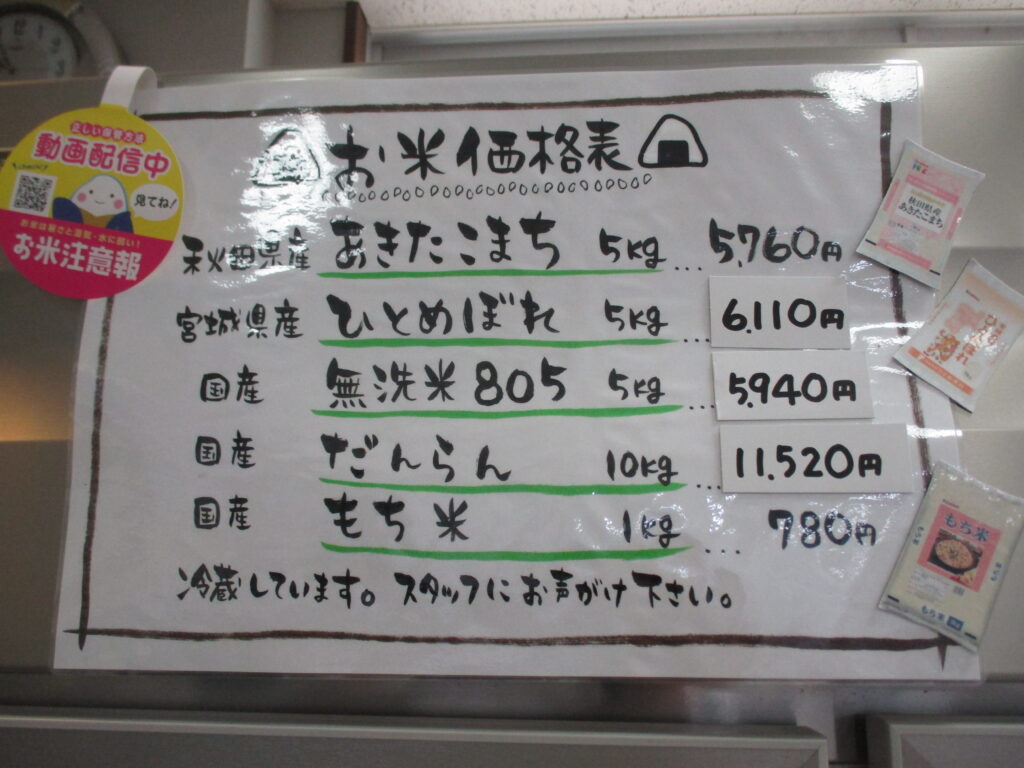 お米価格表
秋田県産 あきたこまち 5kg … 5,760円
宮城県産 ひとめぼれ 5kg … 6,110円
国産 無洗米805 5kg … 5,940円
国産 だんらん 10kg … 11,520円
国産 もち米 1kg … 780円
冷蔵しています。スタッフにお声がけ下さい。
正しい保管方法
動画配信中
見てね!
お米は暑さと湿気・水に弱い!
お米注意報
秋田県産
あきたこまち
ひとめぼれ
もち米
もち米